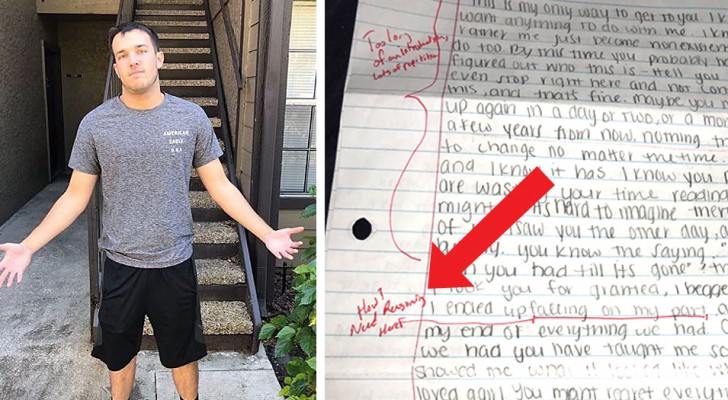 AMERICAN
EAGLE
U.S.A
Too long
of an introduction,
Lots of repetition
This is my only way to get to you. I
want anything to do with me. I
rather me just become
do too. By this time you probably
figured out who this is - Hell you
even stop right here and not
this, and that fine. maybe you
up again in a day or two, or a
a few years from now, nothing
to change no matter the time
and I know it has I know you
are your time reading
might it's hard to imagine
of saw you the other day, a
you know the saying
you had till its gone?
took you for granted, I
How?
Need Reasoning
Here!
I ended up falling on my part,
my end of everything we had
we had you have taught me
showed me
loved again You might regret